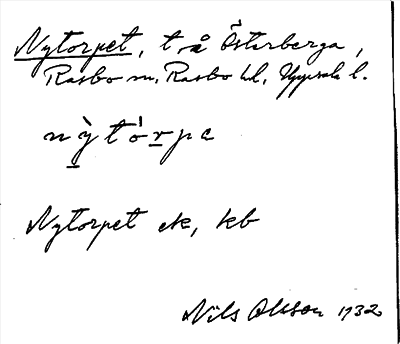 Nytorpet, t. å Österberga,
Rasbo sn, Rasbo hd, Uppsala l.
nỳtórpe
Nytorpet ek, kb
Nils Olsson 1932